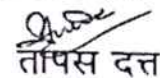 तापस दत्त